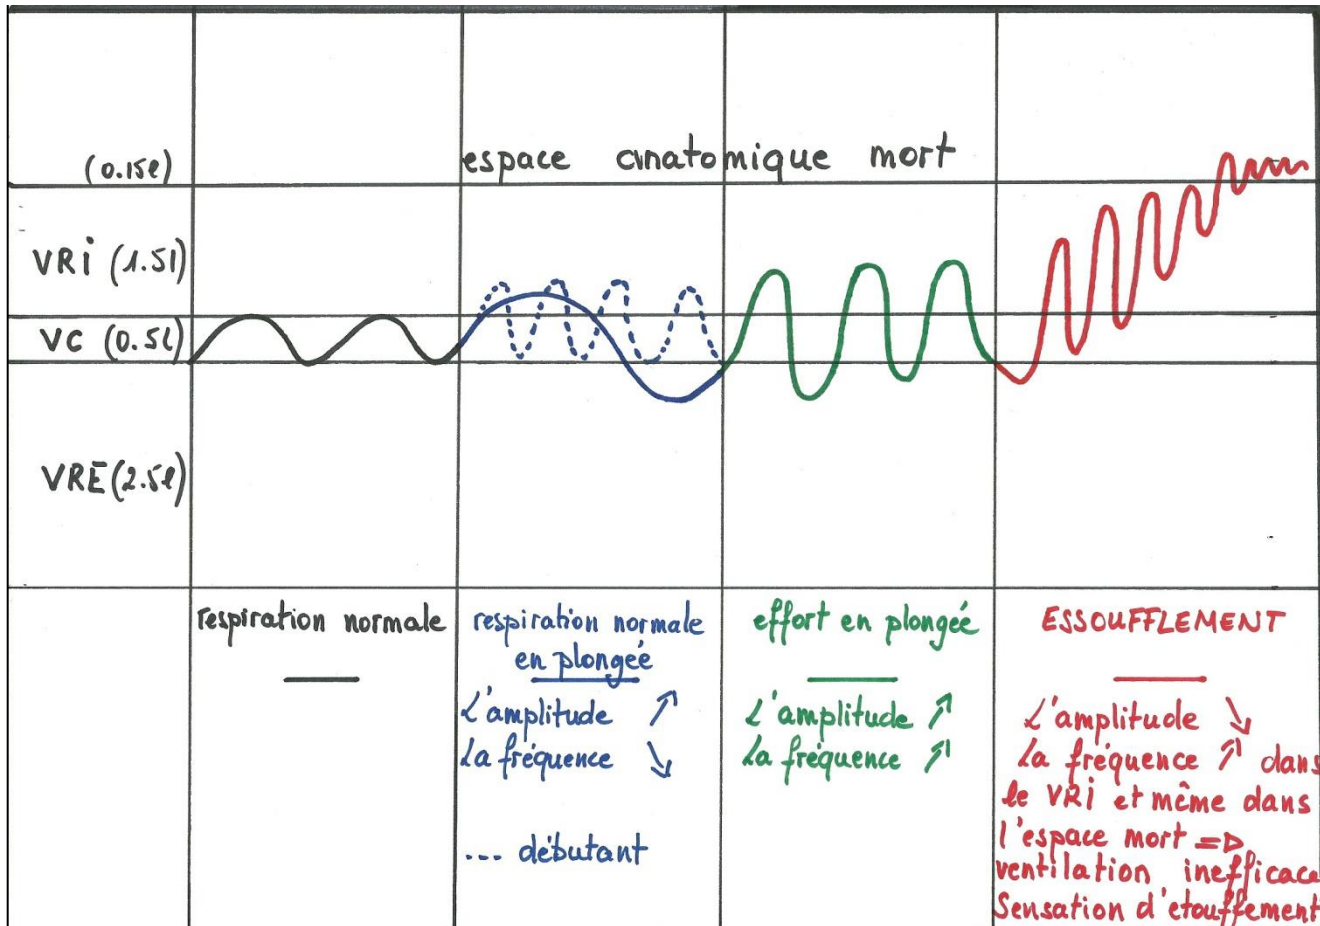 (0.15l)
espace anatomique mort
VRi (1.5l)
VC (0.5l)
VRE (2.5l)
respiration normale
respiration normale
en plongée
L'amplitude ↗
La fréquence ↘
... débutant
effort en plongée
L'amplitude ↗
La fréquence ↗
ESSOUFFLEMENT
L'amplitude ↘
La fréquence ↗ dans
le VRi et même dans
l'espace mort =>
ventilation inefficace
Sensation d'etouffement